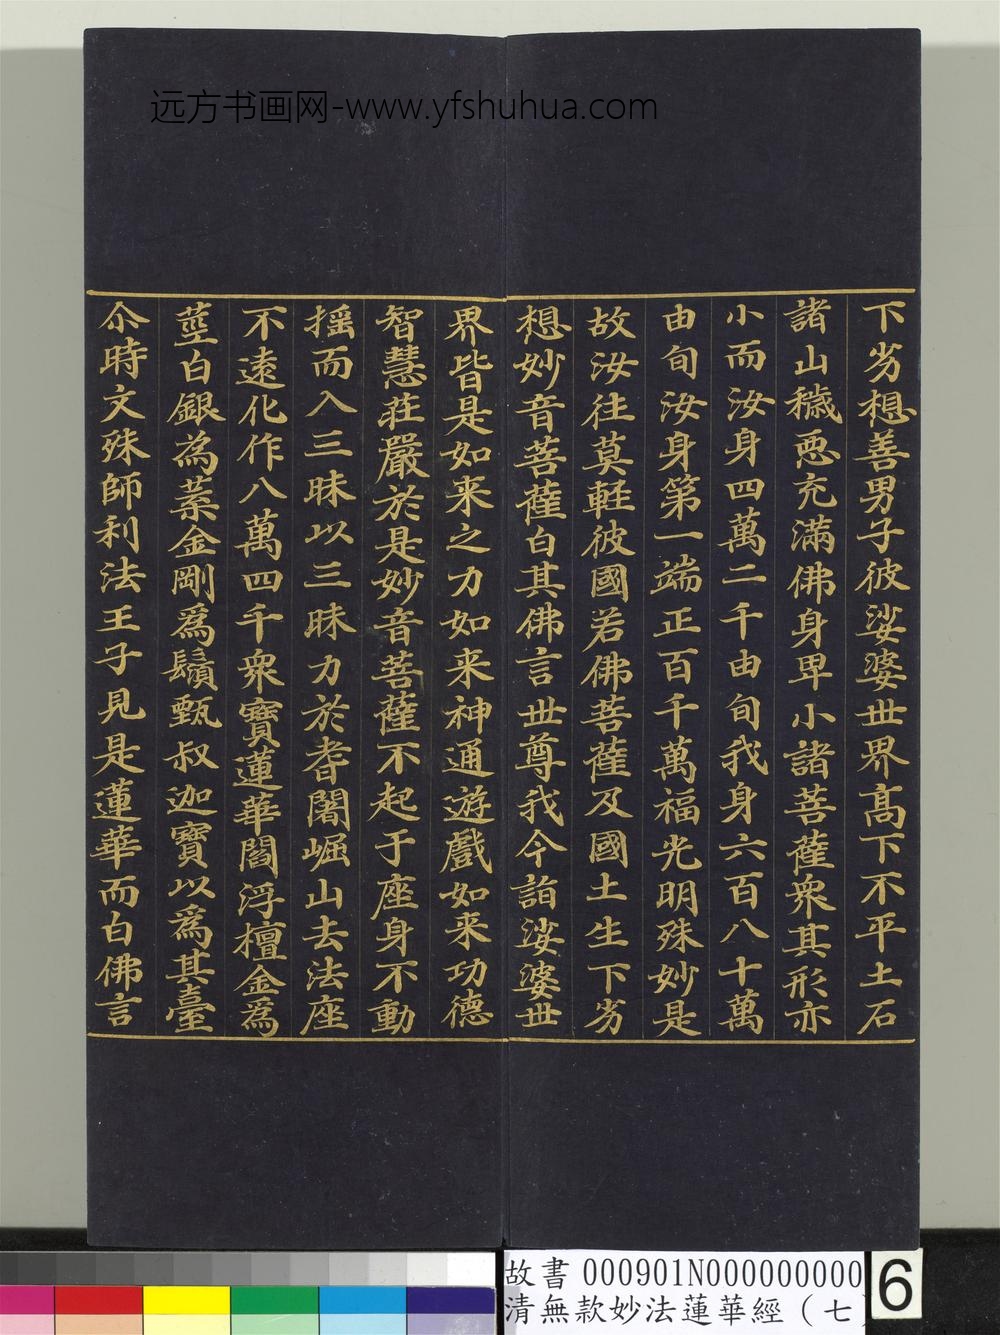 远方书画网-www.yfshuhua.com
下劣想善男子彼娑婆世界高下不平土石
諸山穢惡充滿佛身卑小諸菩薩衆其形亦
小而汝身四萬二千由旬我身六百八十萬
由旬汝身第一端正百千萬福光明殊妙是
故汝往莫輕彼國若佛菩薩及國土生下劣
想妙音菩薩白其佛言世尊我今詣娑婆世
界皆是如来之力如来神通遊戲如来功德
智慧莊嚴於是妙音菩薩不起于座身不動
搖而入三昧以三昧力於耆闍崛山去法座
不遠化作八萬四千衆寶蓮華閻浮檀金為
莖白銀為葉金剛為鬚甄叔迦寶以為其臺
尒時文殊師利法王子見是蓮華而白佛言
故書 000901N000000000
清無款妙法蓮華經（七）
6